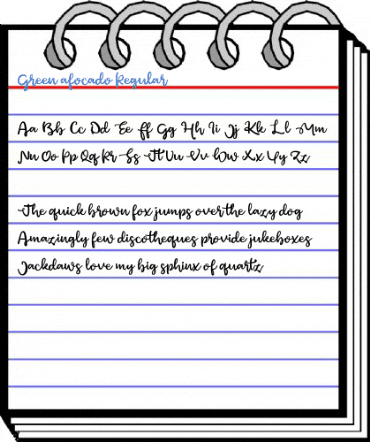 Green afocado Regular
Aa Bb Cc Dd Ee Ff Gg Hh Ii Jj Kk Ll Mm
Nn Oo Pp Qq Rr Ss Tt Uu Vv Ww Xx Yy Zz
The quick brown fox jumps over the lazy dog
Amazingly few discotheques provide jukeboxes
Jackdaws love my big sphinx of quartz